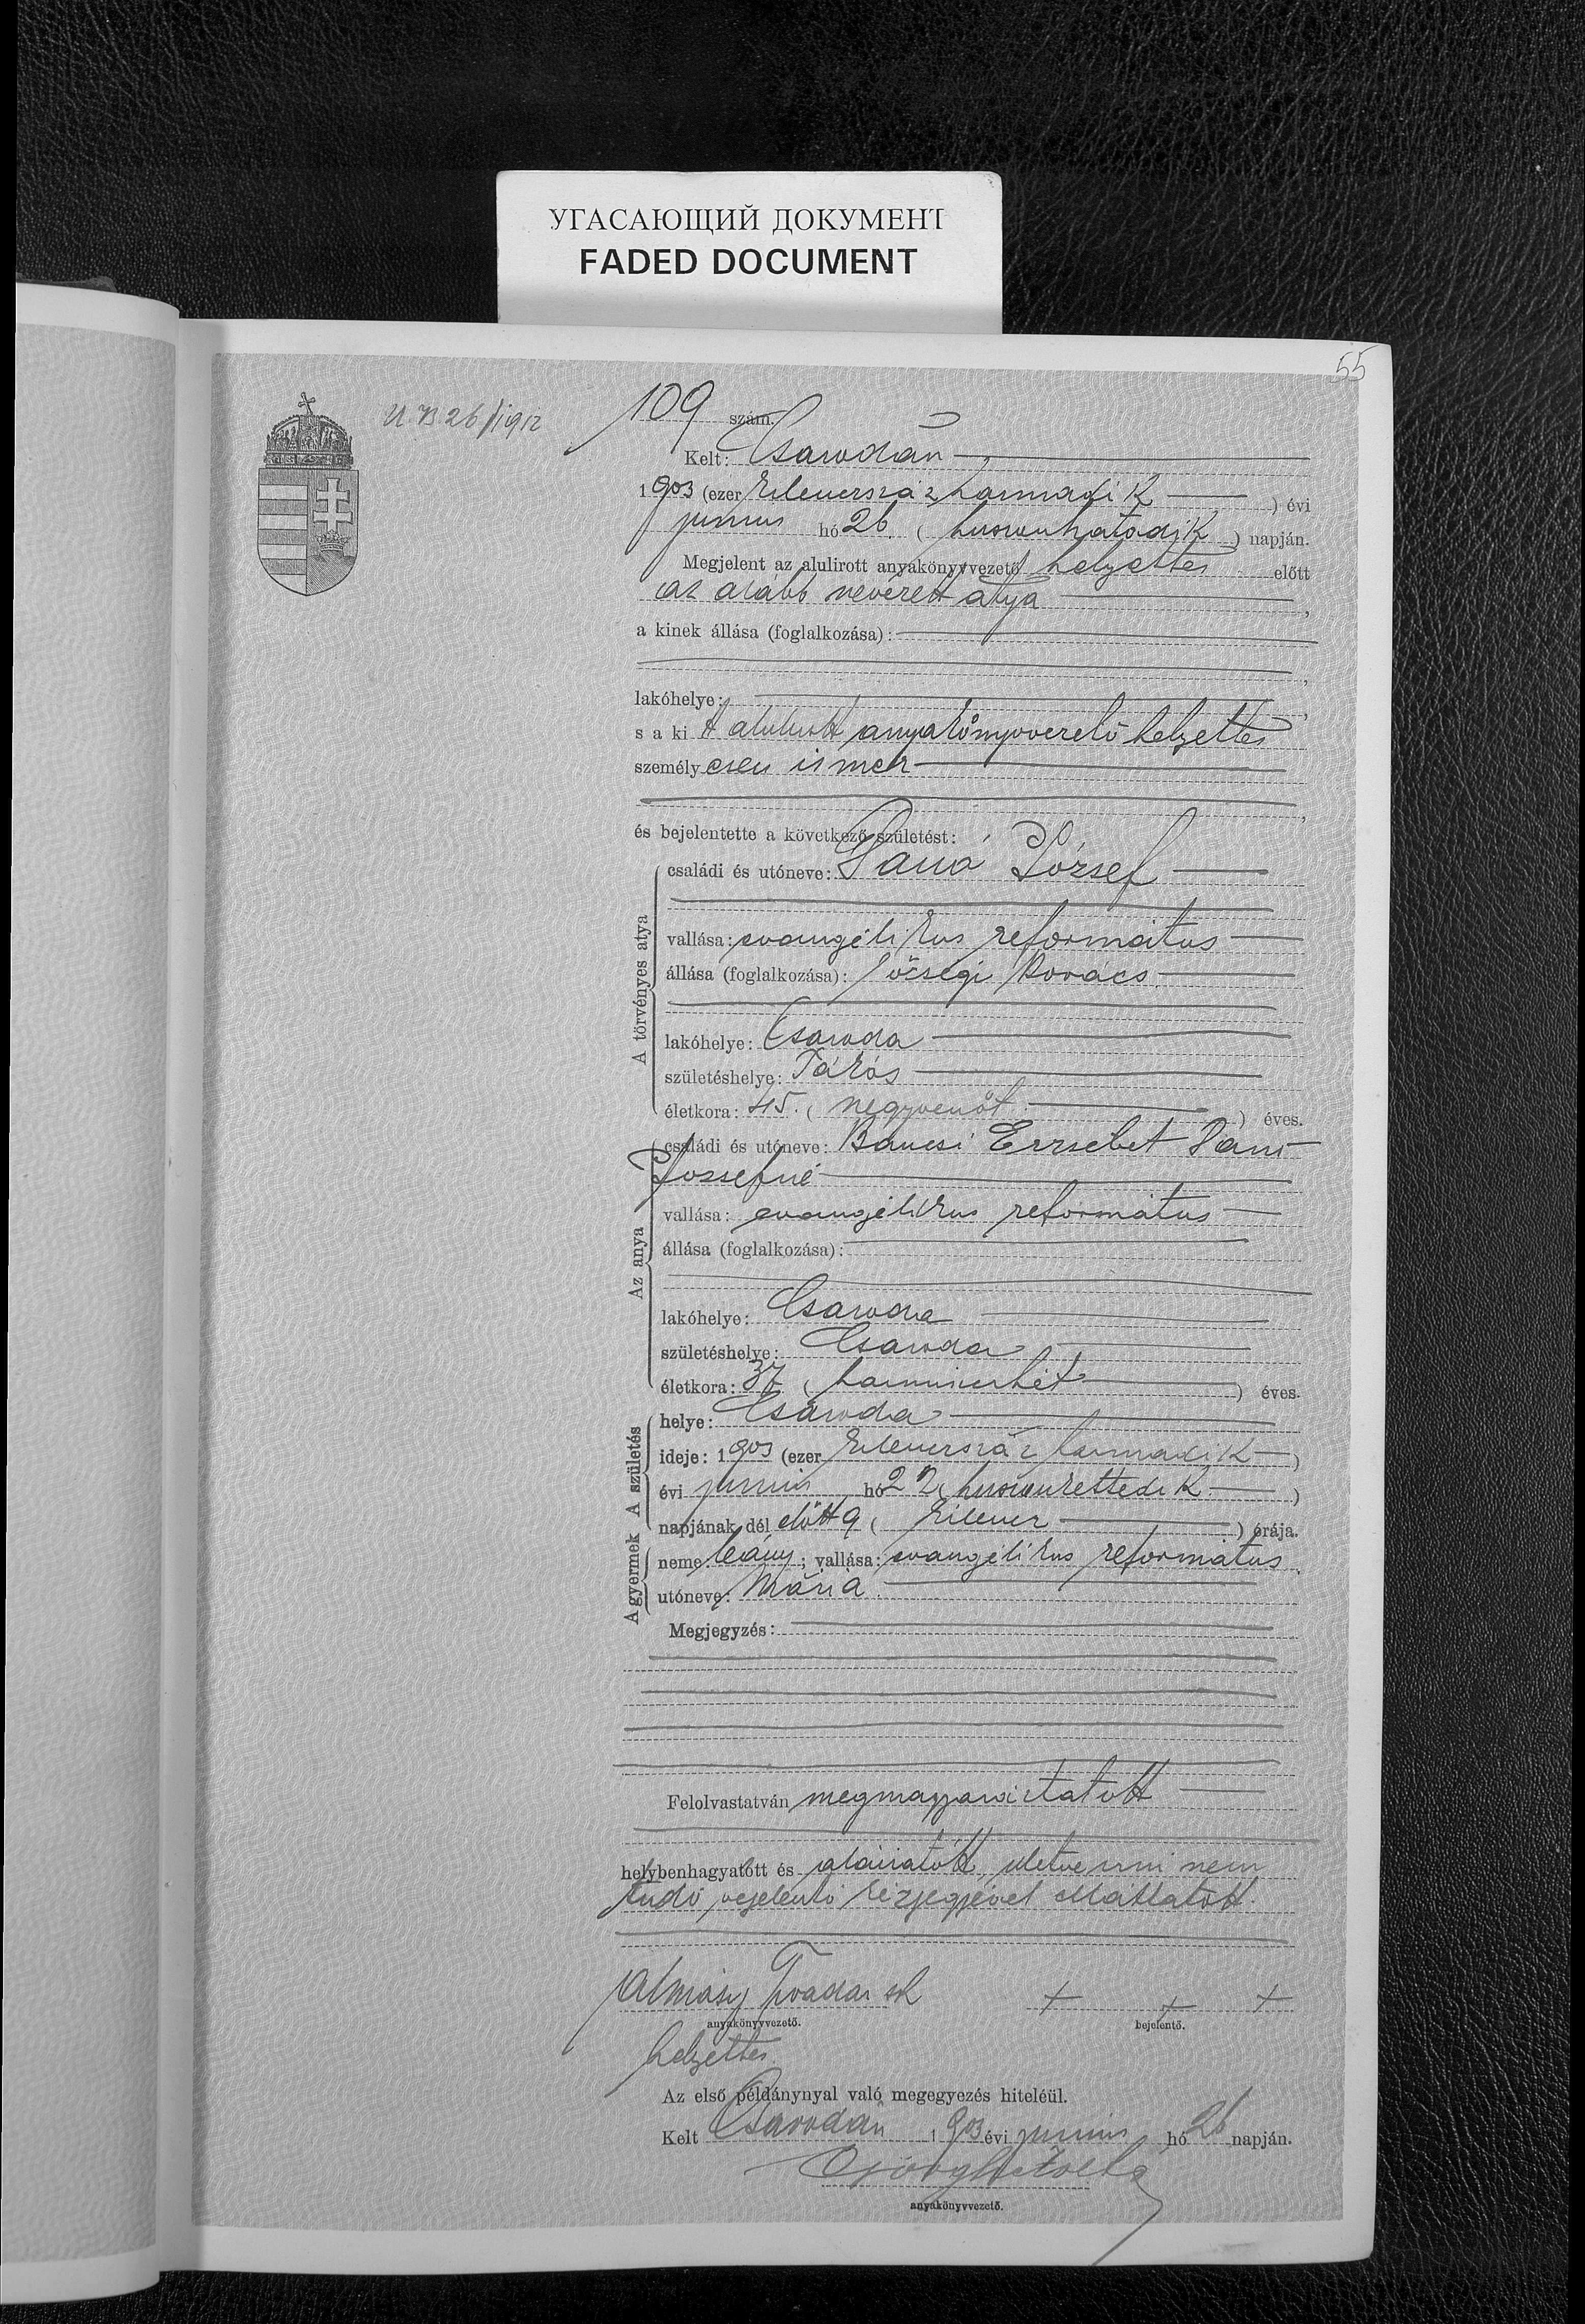 УГАСАЮЩИЙ ДОКУМЕНТ
FADED DOCUMENT
55
109 szám.
Kelt: Csarodán
1903 (ezer kilenczszáz harmadik ) évi
junius hó 26. ( huszonhatodik ) napján.
Megjelent az alulirott anyakönyvvezető helyettes előtt
az alább nevezett atya ,
a kinek állása (foglalkozása):
,
lakóhelye: ,
s a kit alulirott anyakönyvvezető helyettes
személyesen ismer
,
és bejelentette a következő születést:
A törvényes atya
családi és utóneve: József
vallása: evangélikus református
állása (foglalkozása): községi kovács
lakóhelye: Csaroda
születéshelye: Tákos
életkora: 45. ( negyvenöt ) éves.
Az anya
családi és utóneve: Erzsébet
Józsefné
vallása: evangélikus református
állása (foglalkozása):
lakóhelye: Csaroda
születéshelye: Csaroda
életkora: 37 ( harminczhét ) éves.
A születés
helye: Csaroda
ideje: 1903 (ezer kilenczszáz harmadik )
évi junius hó ( )
napjának dél előtt 9 ( kilencz ) órája.
A gyermek
neme: leány; vallása: evangélikus református.
utóneve: Mária.
Megjegyzés:
Felolvastatván megmagyaráztatott
helybenhagyatott és aláiratott, illetve irni nem
tudó bejelentő kézjegyével elláttatott.
Almásy Tivadar sk + + +
anyakönyvvezető. bejelentő.
helyettes
Az első példánynyal való megegyezés hiteléül.
Kelt Csarodán 1903 évi junius hó 26 napján.
anyakönyvvezető.